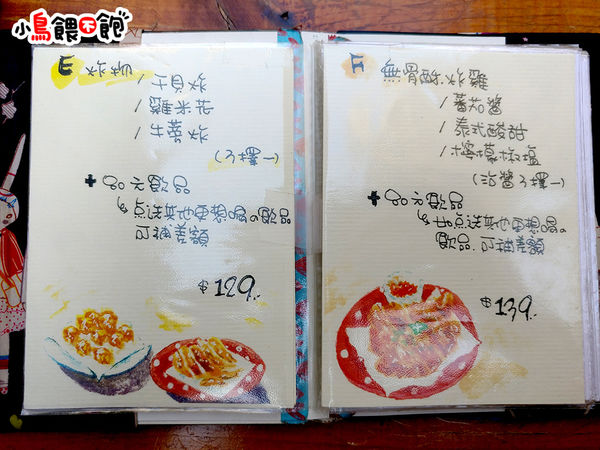 小鳥餵不飽
E 炸物
/ 干貝炸
/ 雞米花
/ 牛蒡炸
(3擇一)
+ 80元飲品
↳ 点选其他更想喝の飲品
可補差額
$129.
F 無骨酥炸雞
/ 蕃茄醬
/ 泰式酸甜
/ 檸檬椒塩
(沾醬3擇一)
+ 80元飲品
↳ 点选其他更想喝の
飲品.可補差額
$139.